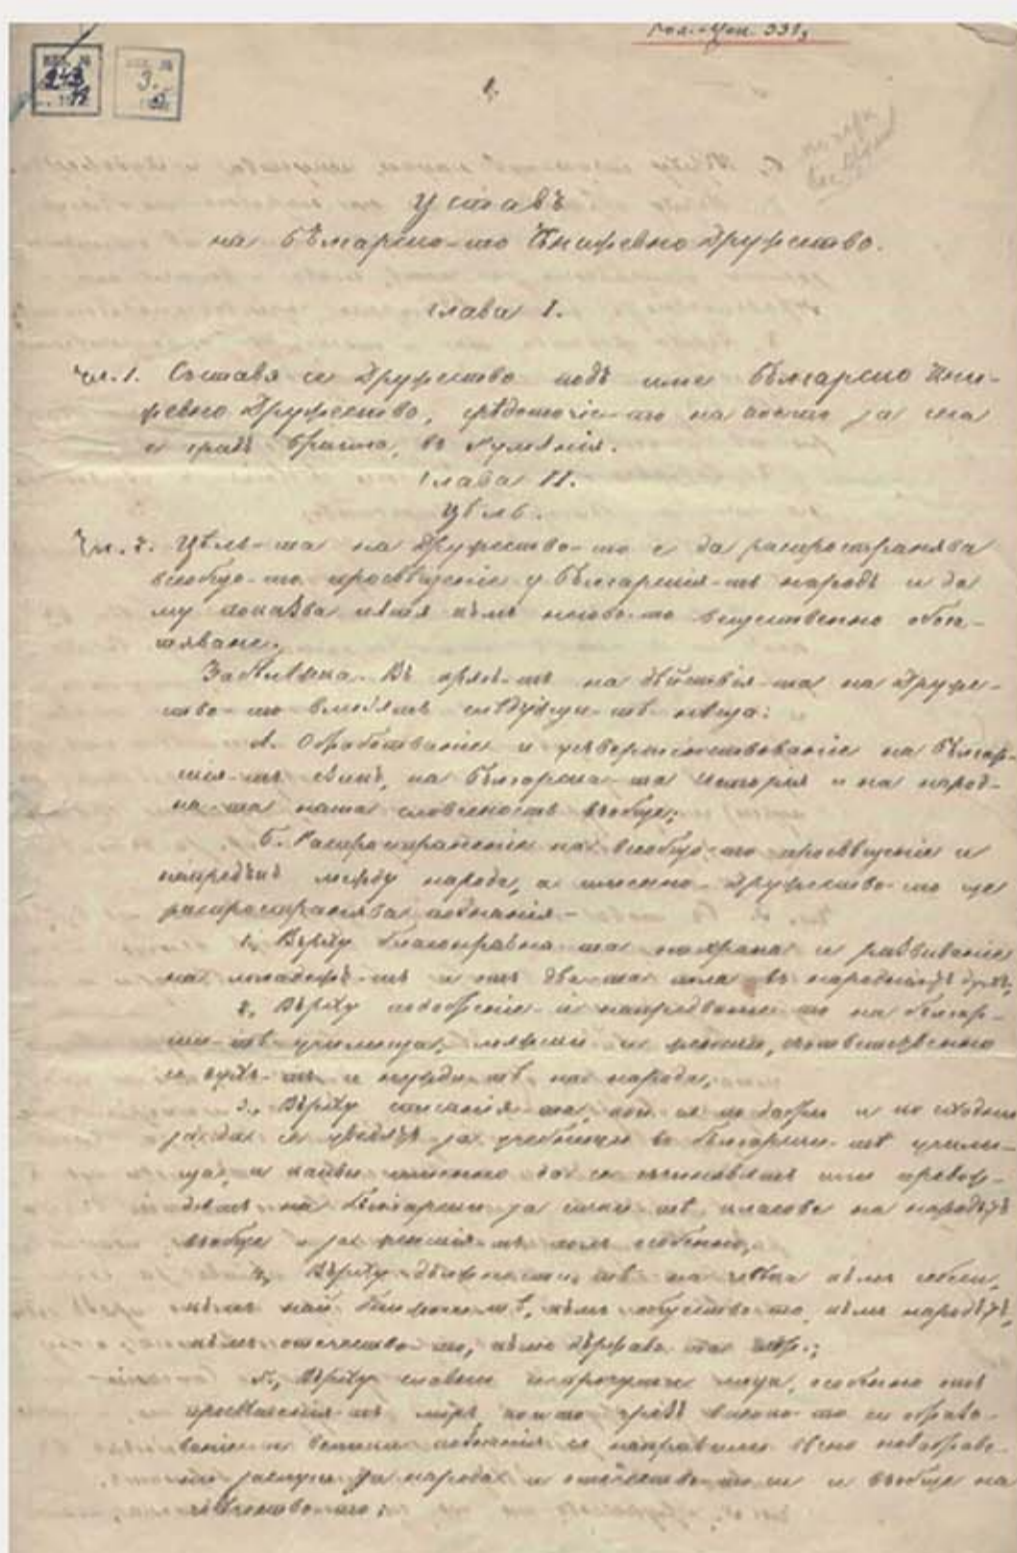 1.
Уставъ
на Българско-то Книжевно Дружество.
Глава I.
Чл. 1. Съставя се Дружество подъ име Българско Кни-
жевно Дружество, срѣдоточіе-то на което за сега
е градъ Браила, въ Румѫнія.
Глава II.
Цѣль.
Чл. 2. Цѣль-та на Дружество-то е да распространява
всеобщо-то просвѣщеніе у Българскія-тъ народъ и да
му показва пѫтя къмъ негово-то веществено обога-
тяване.
Забѣлѣжка. Въ крѫгъ-тъ на дѣйствія-та на Друже-
ство-то влизатъ слѣдующи-тѣ нѣща:
А. Обработваніе и усъвершенствованіе на Българ-
скія-тъ езикъ, на Българска-та Исторія и на народ-
на-та наша словесность въобще;
Б. Распространеніе на всеобщо-то просвѣщеніе и
напредъкъ между народа, а именно Дружество-то ще
распространява познанія -
1, Върху благонравна-та похрана и развиваніе
на младежъ-тъ и отъ два-та пола въ народныйтъ духъ;
2, Върху
на Българ-
ски-тѣ училища, мѫжки и женски, съотвѣтственно
съ духъ-тъ и нужди-тѣ на народа;
3, Върху списанія-та, кои
да се уведѫтъ за учебници въ Български-тѣ учили-
ща, и какви именно да се съчиняватъ или превож-
датъ на Български за
класове на народътъ
въобще и за женскія-тъ полъ особенно;
4, Върху длъжности-тѣ на
къмъ себе си,
къмъ
ближни-тѣ, къмъ общество-то, къмъ народътъ,
къмъ отечество-то, къмъ държава-та
5, Върху славни
мѫжи, особенно отъ
міръ, които чрезъ високо-то си образо-
ваніе и велики познанія сѫ направили
заслуги за народа и отечество-то си и въобще на
човѣчество-то;